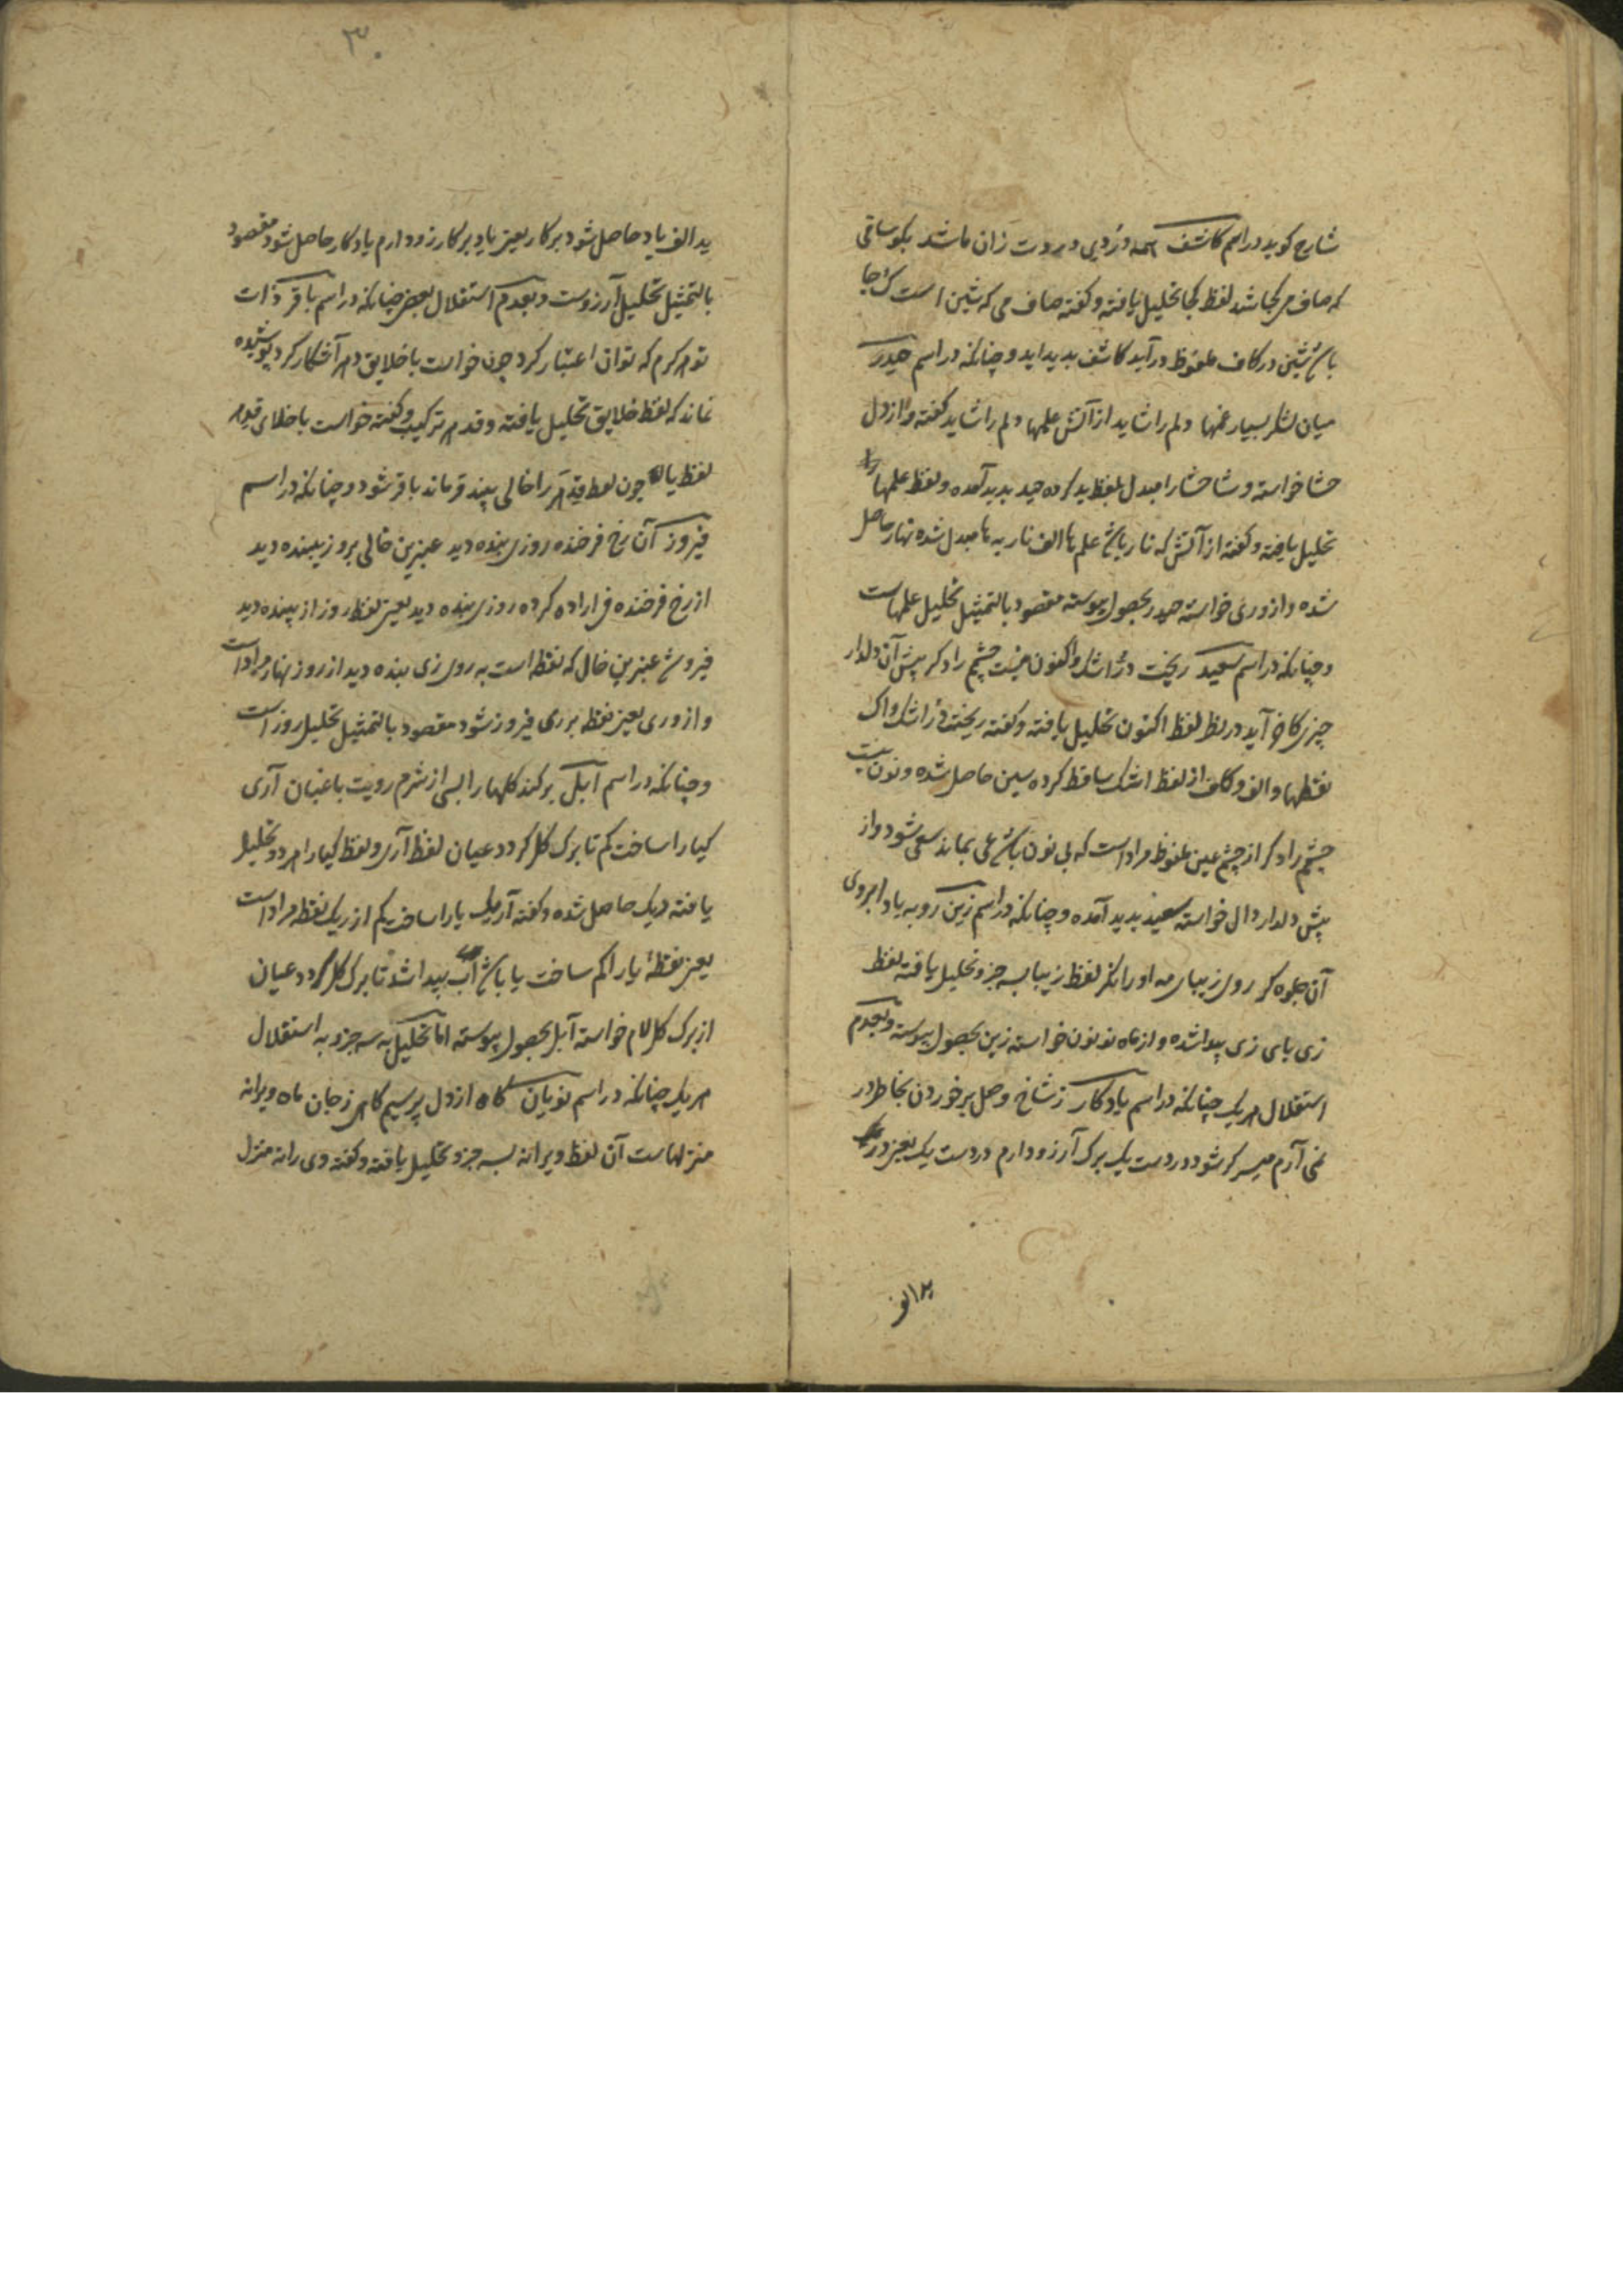 شارح کوید در اسم کاشف همه دُردی و دردت زان ما شد بکو ساقی
که صاف می کجا شد لفظ کجا تحلیل یافته و کفته صاف می که شین است ک جا
باش شین در کاف ملفوظ در آید کاشف بدید اید و چنانکه در اسم حیدر
میان لشکر بسیار غمها دلم را شاید از آتش علمها دلم را شاید کفته و از دل
حشا خواسته و شا حشا را مبدل بلفظ ید کرده حید بدید آمده و لفظ علمها را
تحلیل یافته و کفته از آتش که نار باش علم ها الف نار به ها مبدل شده نهار حاصل
شده و از وری خواسته حیدر بحصول پیوسته مقصود بالتمثیل تحلیل علمهاست
و چنانکه در اسم سعید ریخت دُر اشک و اکنون نیست چشم راد کر پیش آن دلدار
چیزی کاو آید در نظر لفظ اکنون تحلیل یافته و کفته ریخت دُر اشک و اک
نقطها و الف و کاف از لفظ اشک ساقط کرده سین حاصل شده و نون نیست
چشم راد کر از چشم عین ملفوظ مراد است که بی نون باش عی بماند سعی شود و از
پیش دلدار دال خواسته سعید بدید آمده و چنانکه در اسم زین رو به یاد ابروی
آن جلوه کر روی زیبای مه او را نکر لفظ زیبا بسه جزو تحلیل یافته لفظ
زی بای زی پیدا شده و از ماه نو نون خواسته زین بحصول پیوسته و بعدم
استقلال هر یک چنانکه در اسم یادکار ز شاخ وصل برخوردن بخاطر در
نمی آرم میسر کر شود در دست یک برک آرزو دارم در دست یک یعنی در
ید الف
۳۰
ید الف یاد حاصل شود بر کار یعنی یاد بر کار زو دارم یادکار حاصل شود مقصود
بالتمثیل تحلیل آرزوست و بعدم استقلال بعض چنانکه در اسم باقر ذات
تو هر کرم که توان اعتبار کرد چون خواست با خلایق دهر آشکار کرد پوشیده
نماند که لفظ خلایق تحلیل یافته و قدم هر ترکیب و کفته خواست با خلای قدهر
لفظ با چون لفظ قدهر را خالی بیند قر ماند باقر شود و چنانکه در اسم
فیروز آن رخ فرخنده روزی بنده دید عنبرین خالی بروز بیننده دید
از رخ فرخنده فی اراده کرده روزی بنده دید یعنی لفظ روز از بیننده دید
فیروش عنبرین خال که نقطه است به روی زی بنده دید از روز نهار مراد است
و از وری یعنی نقطه بر ری فیروز شود مقصود بالتمثیل تحلیل روز است
و چنانکه در اسم آبل بر کند کلها را بسی از شرم رویت باغبان آری
کیا را ساخت کم تا برک کل کردد عیان لفظ آری و لفظ کیا را هر دو تحلیل
یافته ریک حاصل شده و کفته آ ریک یا را ساخت کم از ریک نقطه مراد است
یعنی نقطهٔ یا را کم ساخت یا باش آب پیدا شد تا برک کل کردد عیان
از برک کل لام خواسته آبل بحصول پیوسته اما تحلیل به سه جزو به استقلال
هر یک چنانکه در اسم نویان کاه از دل پرسیم کاهی ز جان ماه ویرانه
منزلهاست آن لفظ ویرانه بسه جزو تحلیل یافته و کفته وی رانه منزل